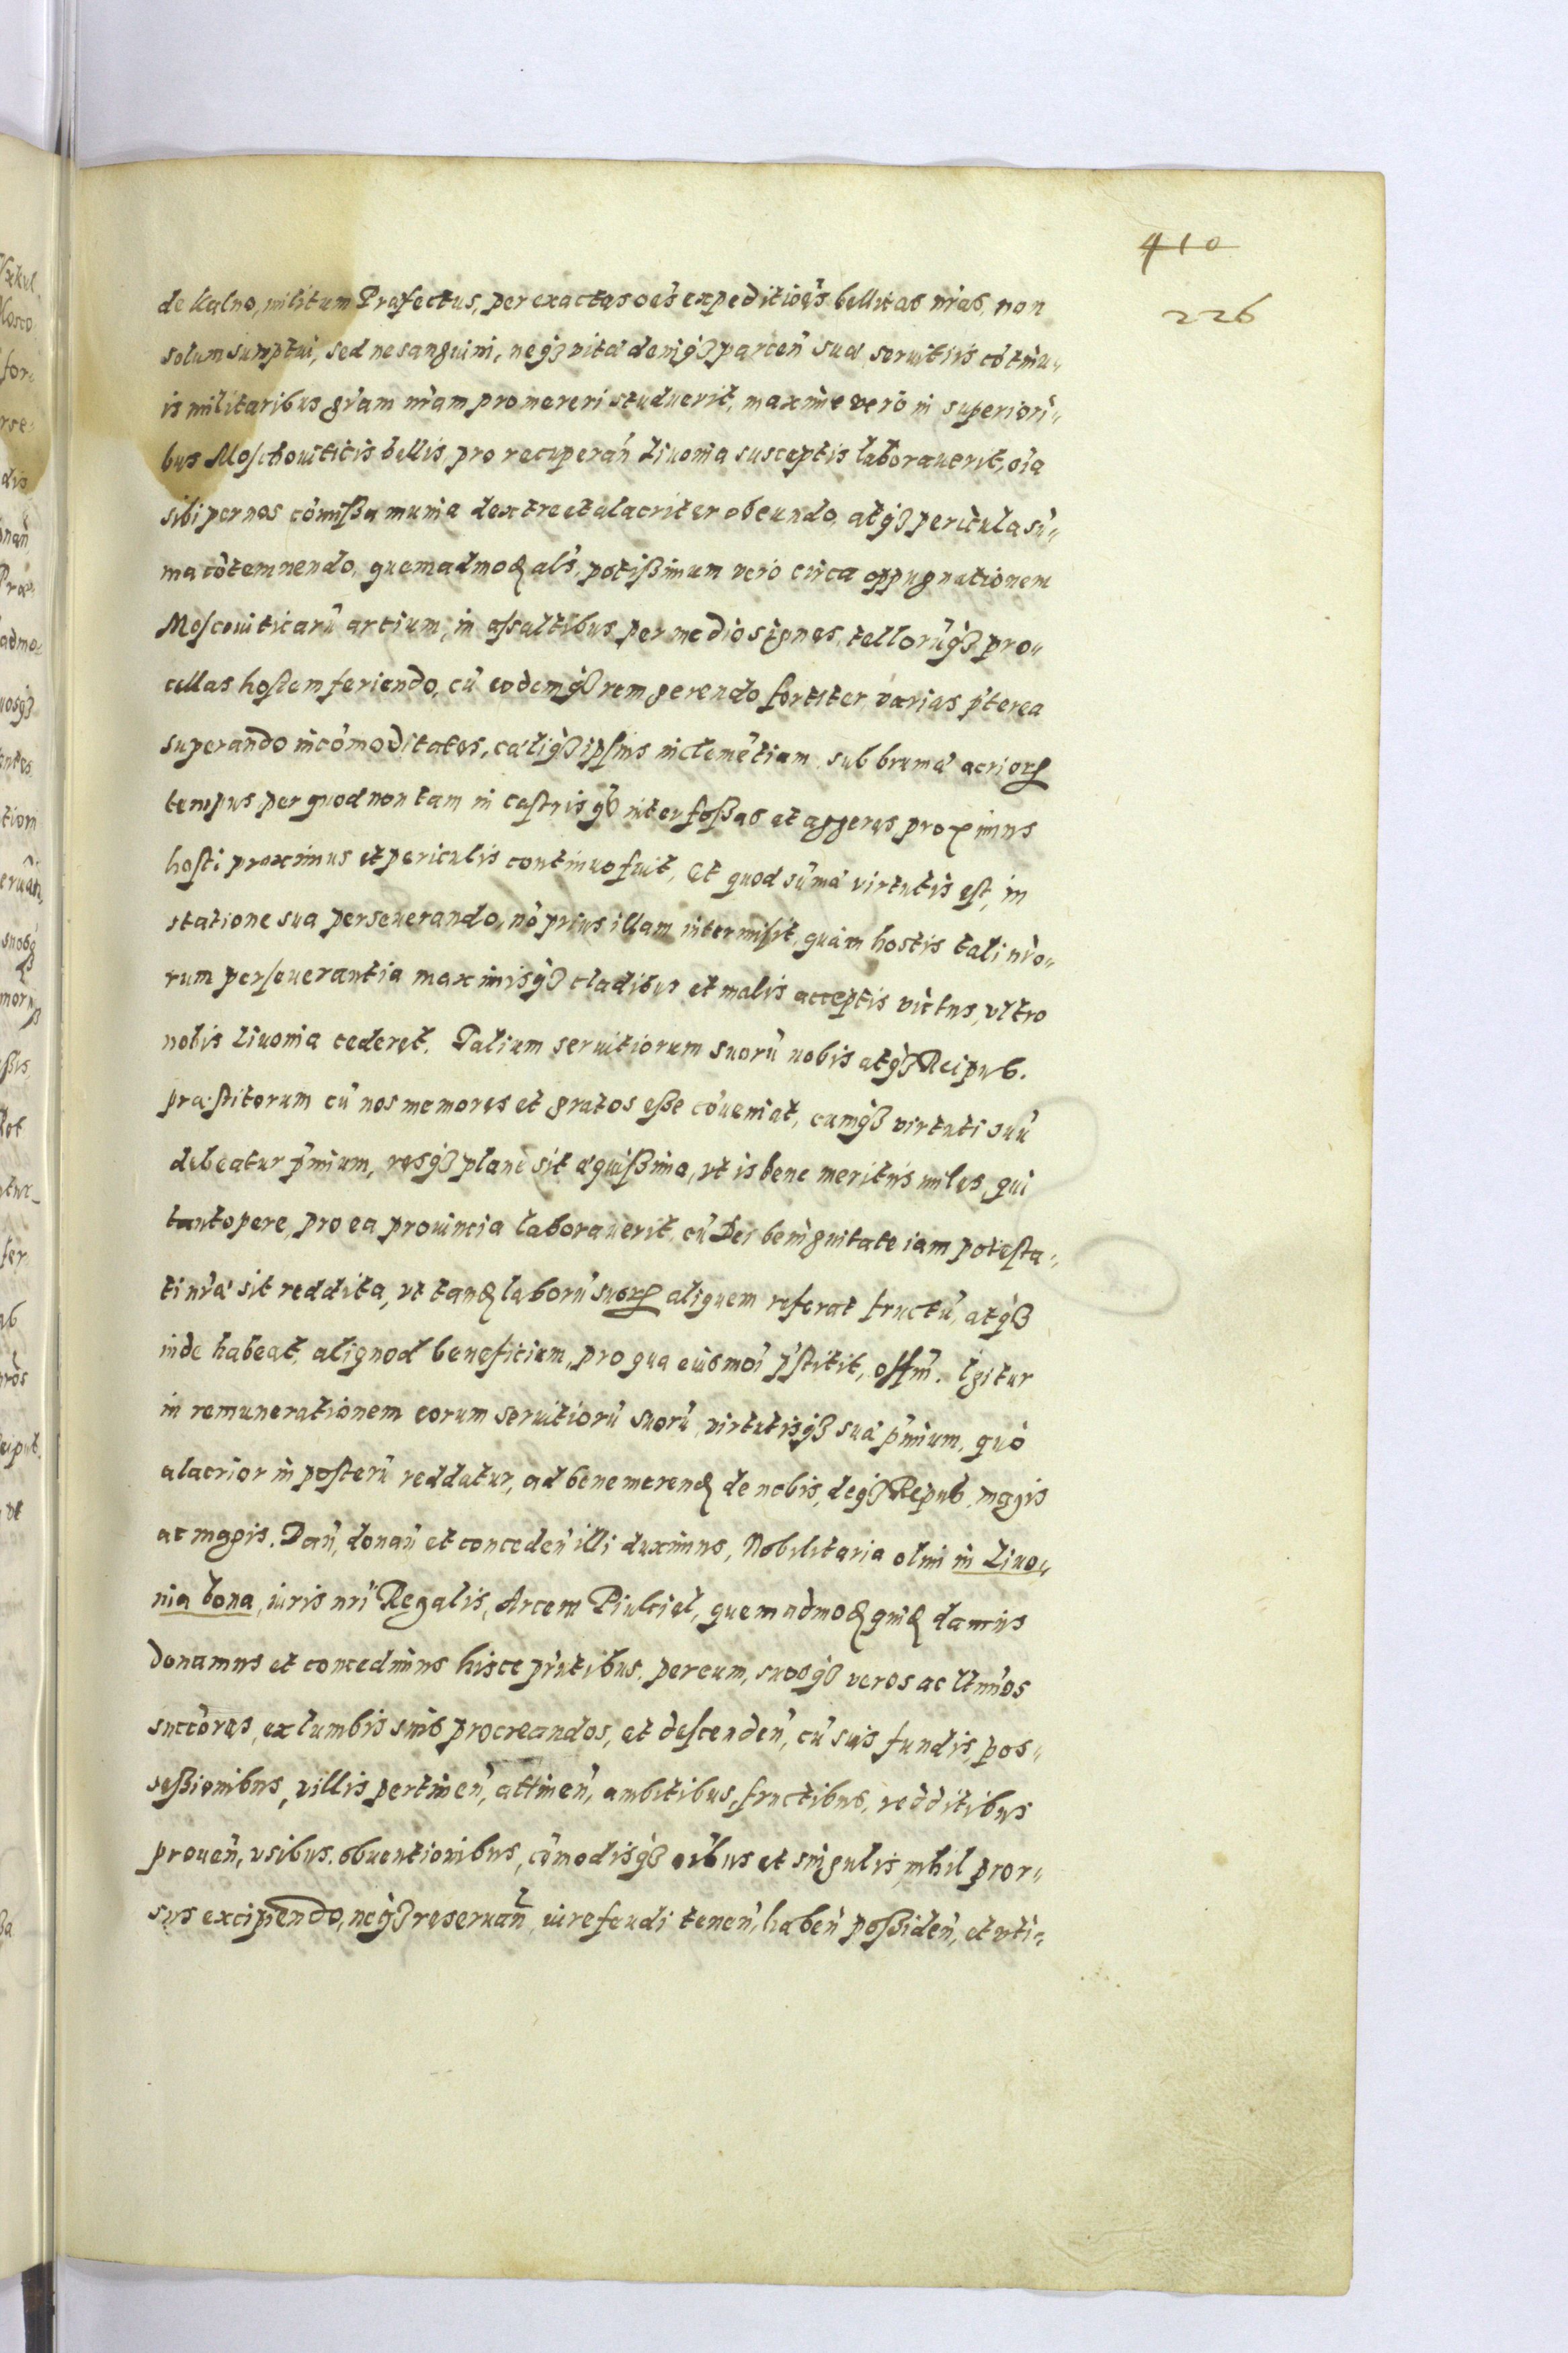 410
226
de Kalno, militum Præfectus, per exactas oe͂s expeditio͂es bellicas nr͂as, non
solum sumptui, sed ne sanguini, neqꝫ vitæ deniqꝫ parcen͂ suæ seruitiis co͂tinu„
is militaribus gr͂am nr͂am promereri studuerit, maxime vero in superiori„
bus Moschouiticis bellis, pro recuperan͂ Liuonia susceptis laborauerit, oi͂a
sibi per nos co͂missa munia dextre et alacriter obeundo, atqꝫ pericula su͂„
ma co͂temnendo, quemadmoꝺ al͂s, potissimum vero circa oppugnationem
Moscouiticaru͂ arcium, in assaltibus per medios ignes, telloru͂qꝫ pro„
cellas hostem feriendo, cu͂ eodemqꝫ rem gerendo fortiter, varias p͂terea
superando inco͂moditates, cæliqꝫ ipsius incleme͂tiam, sub bruma acrioꝝ
tempus per quod non tam in castris qꝫ inter fossas et aggeres proximus
hosti proximus et periculis continuo fuit, et quod su͂mæ virtutis est, in
statione sua perseuerando, no͂ prius illam intermisit, quàm hostis tali nr͂o„
rum perseuerantia maximisqꝫ cladibus et malis acceptis victus, vltro
nobis Liuonia cederet. Talium seruitiorum suoru͂ nobis atqꝫ Reipub.
præstitorum cu͂ nos memores et gratos esse co͂ueniat, cumqꝫ virtuti suu͂
debeatur p͂mium, resqꝫ plane sit æquissima, vt is bene meritus miles, qui
tantopere, pro ea prouincia laborauerit, cu͂ Dei benignitate iam potesta„
ti nr͂æ sit reddita, vt tanꝺ laboru͂ suoꝝ aliquem referat fructu͂, atqꝫ
inde habeat, aliquod beneficium, pro qua eiusmoi͂ p͂stitit, offm͂. Igitur
in remunerationem eorum seruitioru͂ suoru͂, virtutisqꝫ suæ p͂mium, quò
alacrior in posteru͂ reddatur, ad bene merenꝺ de nobis, deqꝫ Repub. magis
ac magis. Dan͂, donan͂ et conceden͂ illi duximus, Nobilitaria olim in Liuo„
nia bona, iuris nr͂i Regalis, Arcem Piulciel, quemadmoꝺ quiꝺ damus
donamus et concedimus hisce pn͂tibus, per eum, suosqꝫ veros ac ltm͂os
succo͂res, ex lumbis suis procreandos, et descenden͂, cu͂ suis fundis, pos„
sessionibus, villis pertinen͂, attinen͂, ambitibus, fructibus, redditibus
prouen͂, vsibus, obuentionibus, co͂modisqꝫ oi͂bus et singulis, nihil pror„
sus excipiendo, neqꝫ reseruan͂, iure feudi tenen͂, haben͂ possiden͂, et vti„